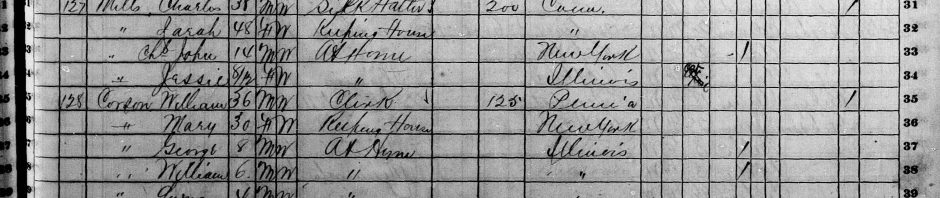 31 127 Mills, Charles 38 M W Silk Hatter 200 Conn. 1 31
" Sarah 48 F W Keeping House " 32
" Chs John 14 M W At Home New York 1 33
34 " Jessie 8/12 F W " Illinois 34
35 128 Corson William 36 M W Clerk 125 Penn'a 1 35
36 " Mary 30 F W Keeping House New York 36
37 " George 8 M W At Home Illinois 1 37
38 " William 6 M W " " 1 38
" 4 M W " " 39